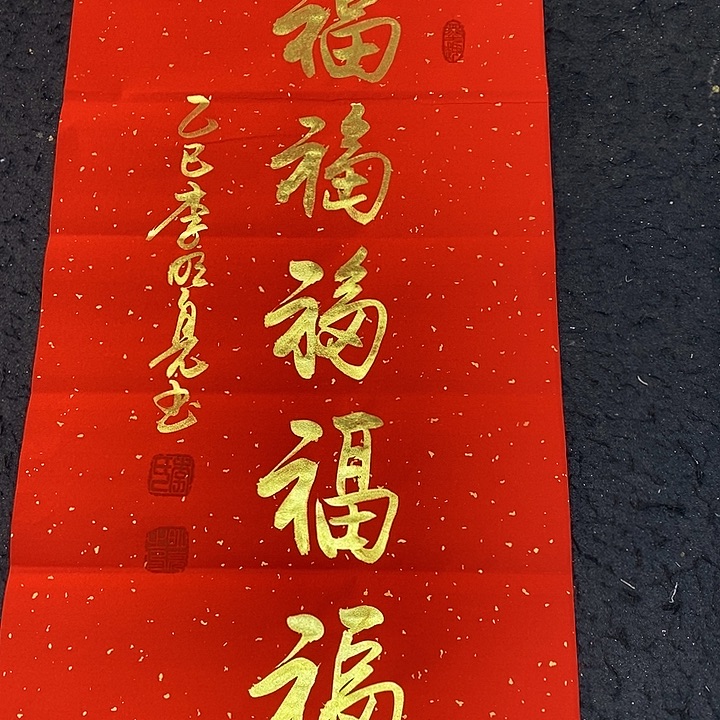 福福福福福
乙巳李明亮书